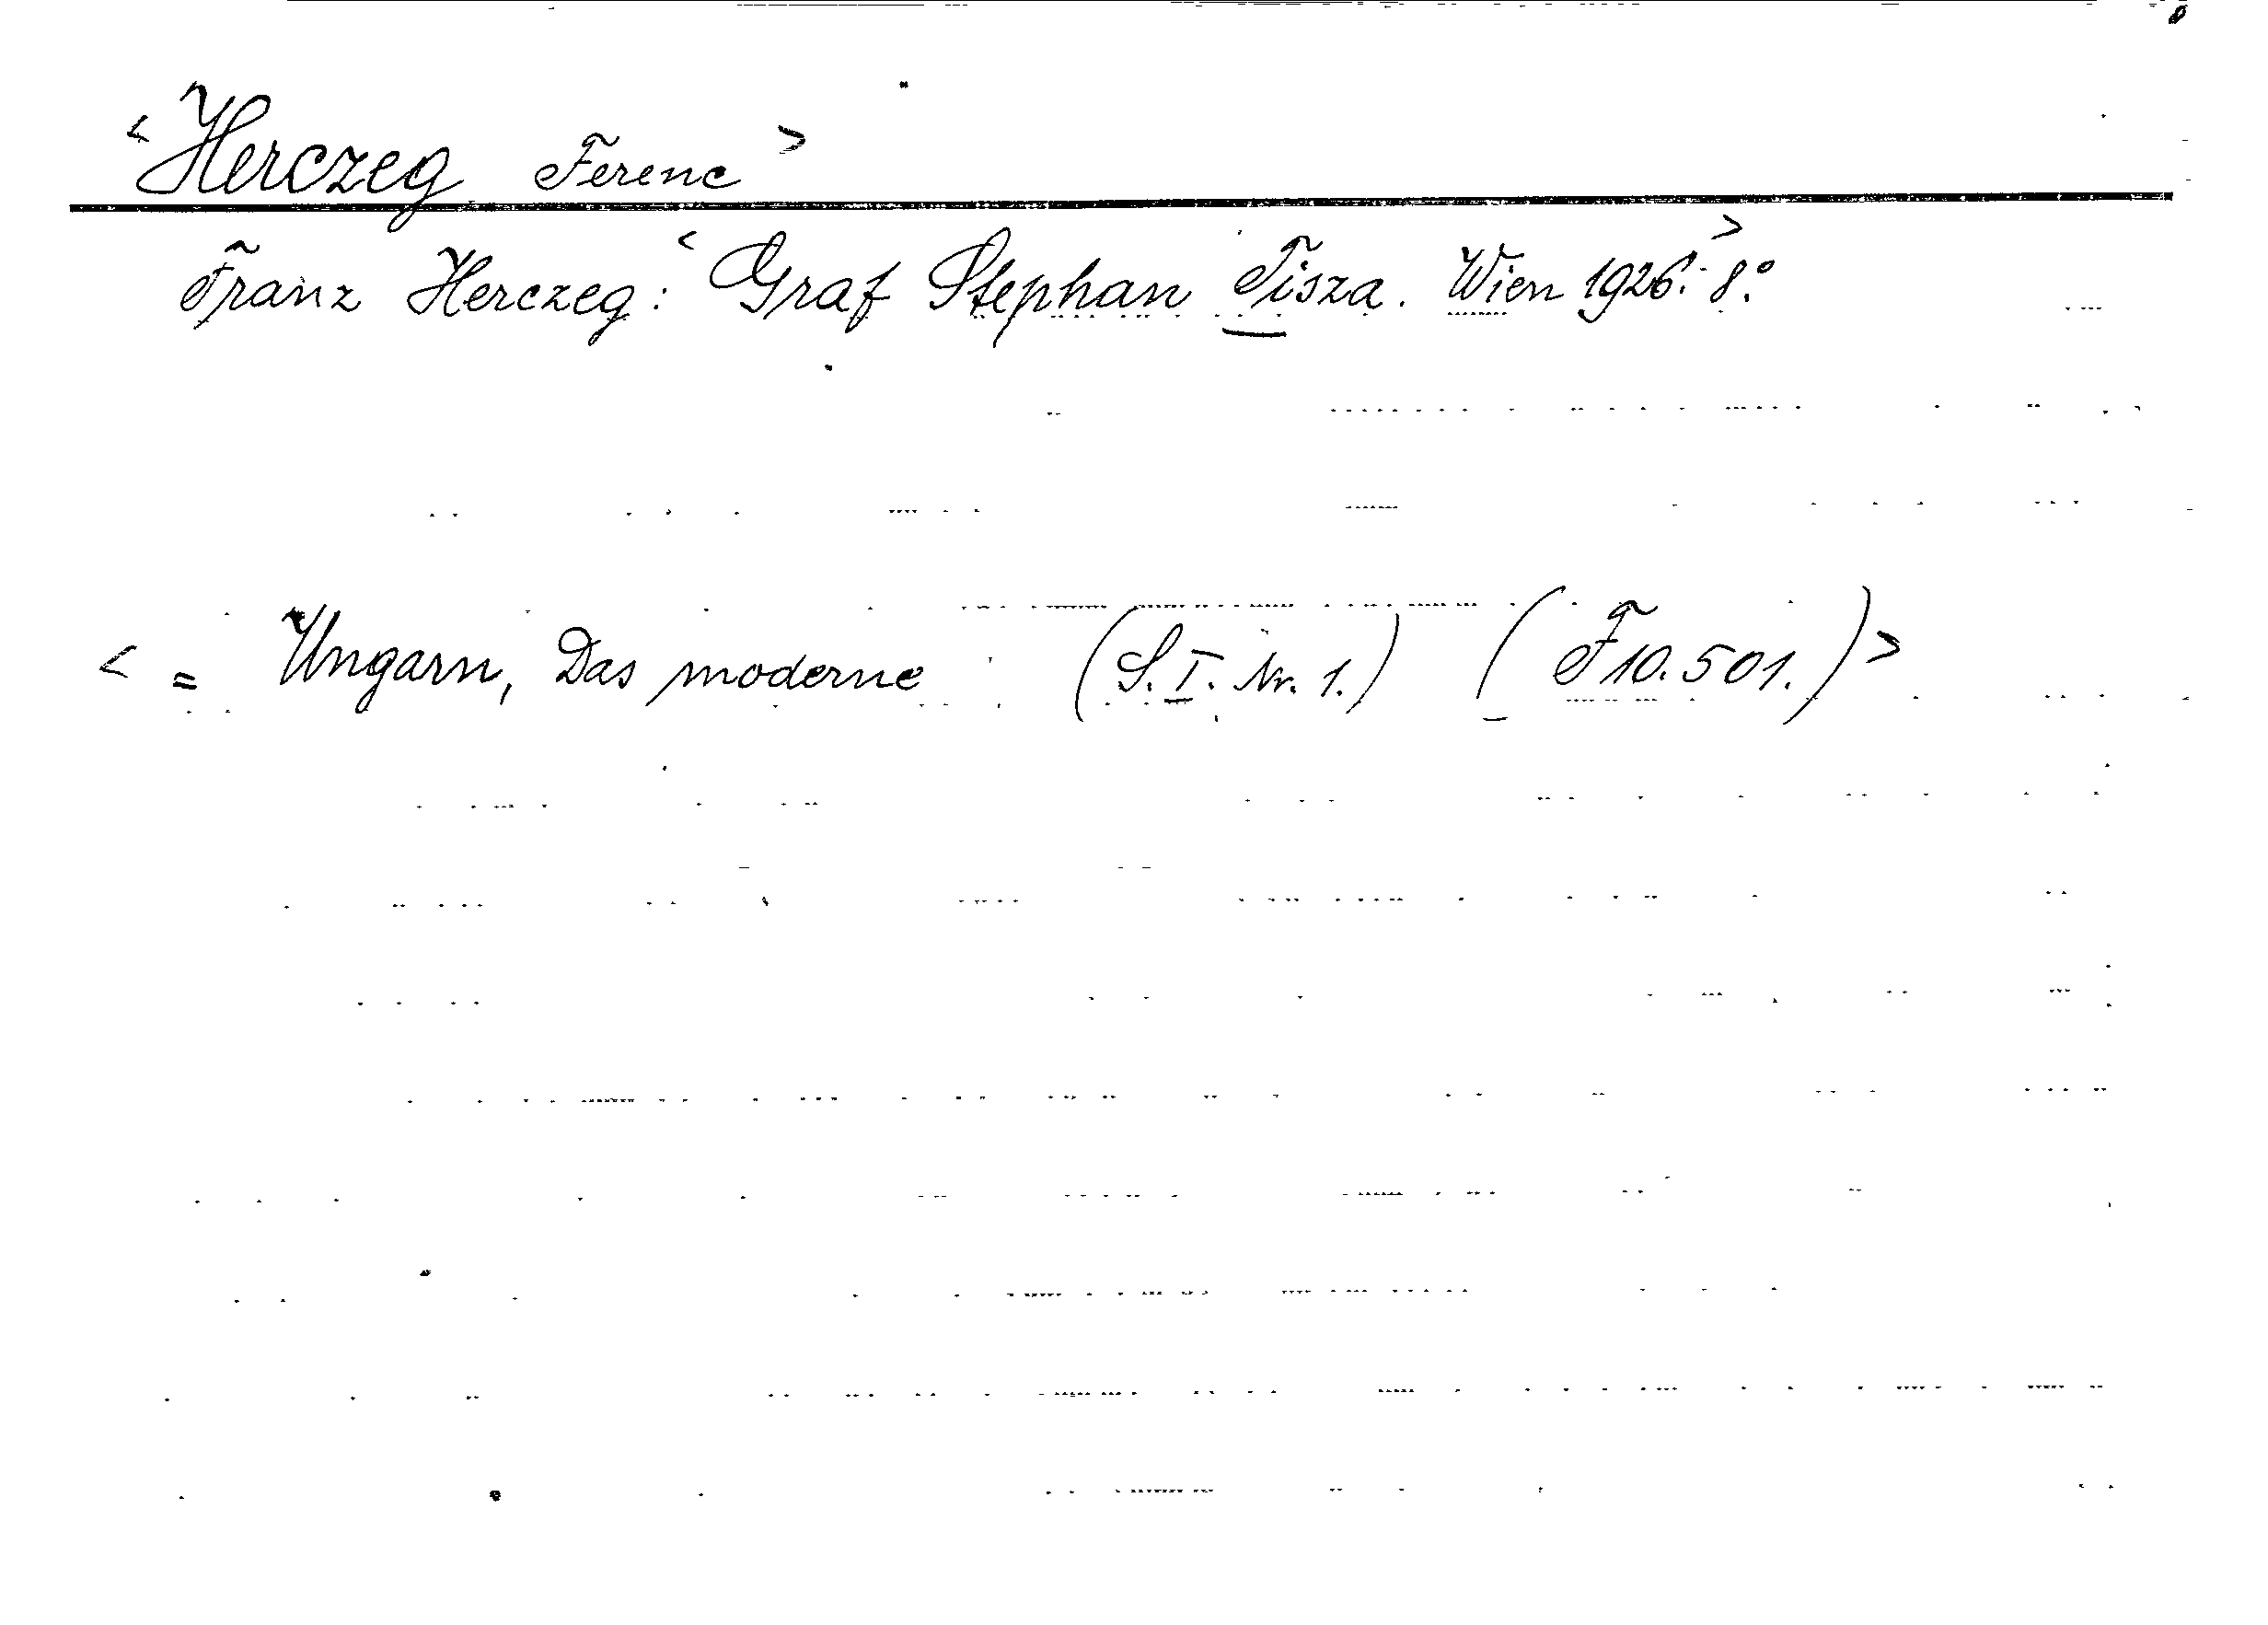 <Herczeg Ferenc>
Franz Herczeg: <Graf Stephan Tisza. Wien 1926.> 8.°
< = Ungarn, Das moderne (S. I. Nr. 1.) (F 10.501.)>